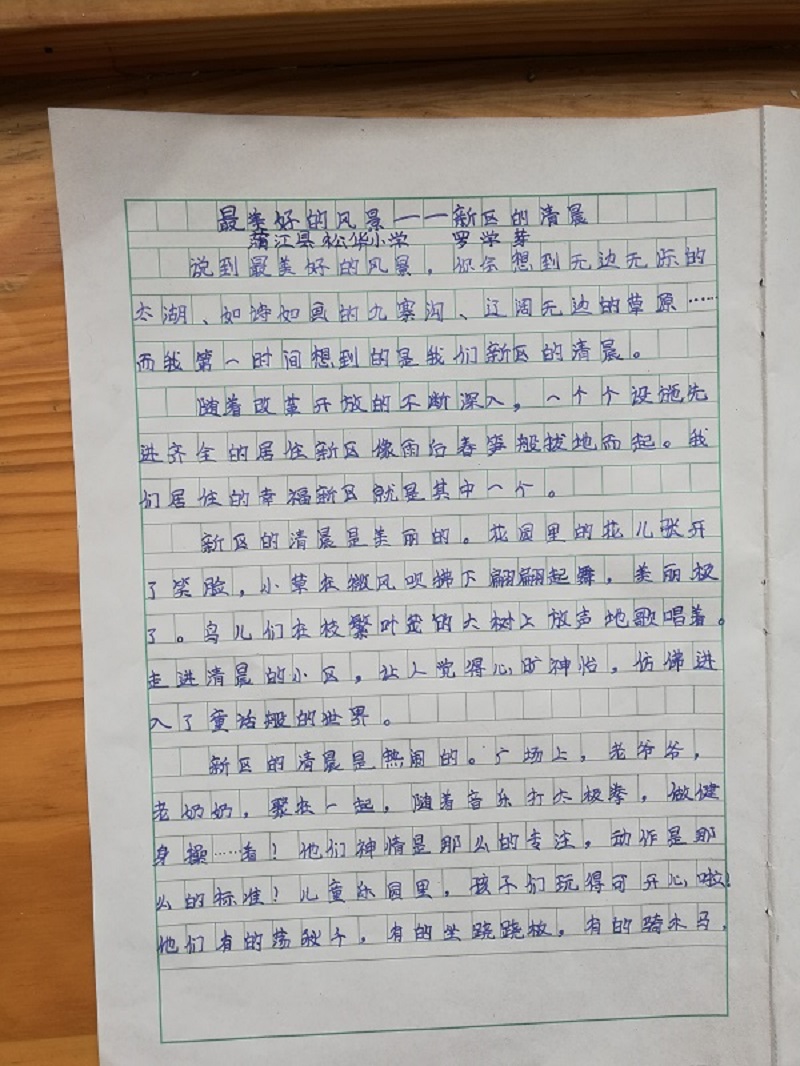 最美好的风景——新区的清晨
蒲江县松华小学 罗学芽
说到最美好的风景，你会想到无边无际的
太湖、如诗如画的九寨沟、辽阔无边的草原……
而我第一时间想到的是我们新区的清晨。
随着改革开放的不断深入，一个个设施先
进齐全的居住新区像雨后春笋般拔地而起。我
们居住的幸福新区就是其中一个。
新区的清晨是美丽的。花园里的花儿张开
了笑脸，小草在微风吹拂下翩翩起舞，美丽极
了。鸟儿们在枝繁叶茂的大树上放声地歌唱着。
走进清晨的小区，让人觉得心旷神怡，仿佛进
入了童话般的世界。
新区的清晨是热闹的。广场上，老爷爷，
老奶奶，聚在一起，随着音乐打太极拳，做健
身操……看！他们神情是那么的专注，动作是那
么的标准！儿童乐园里，孩子们玩得可开心啦！
他们有的荡秋千，有的坐跷跷板，有的骑木马，